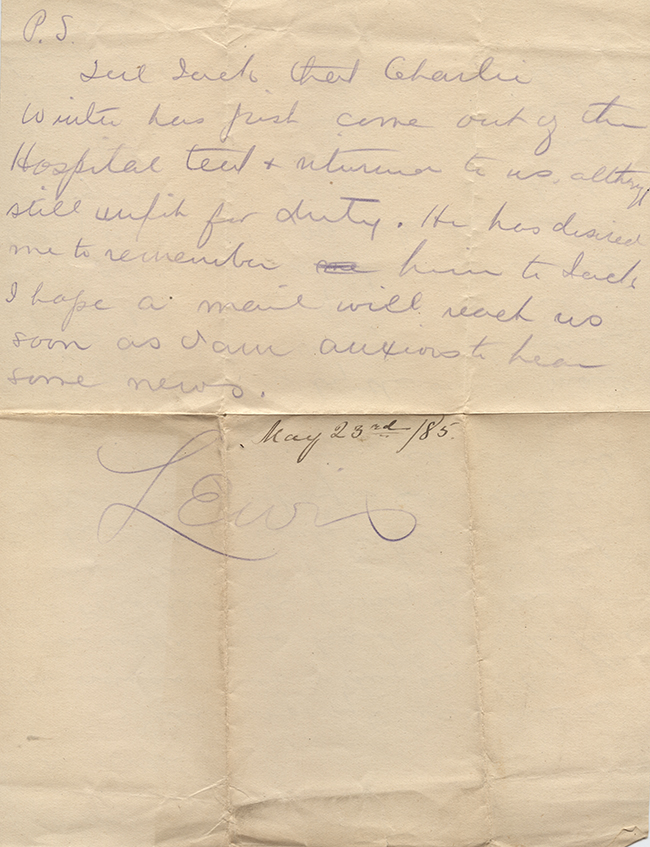 P.S.
Tell Jack that Charlie
Winter has just come out of the
Hospital tent + returned to us, althoug
still unfit for duty. He has desired
me to remember him to Jack
I hope a mail will reach us
soon as I am anxious to hear
some news.
May 23rd /85.
Lewis